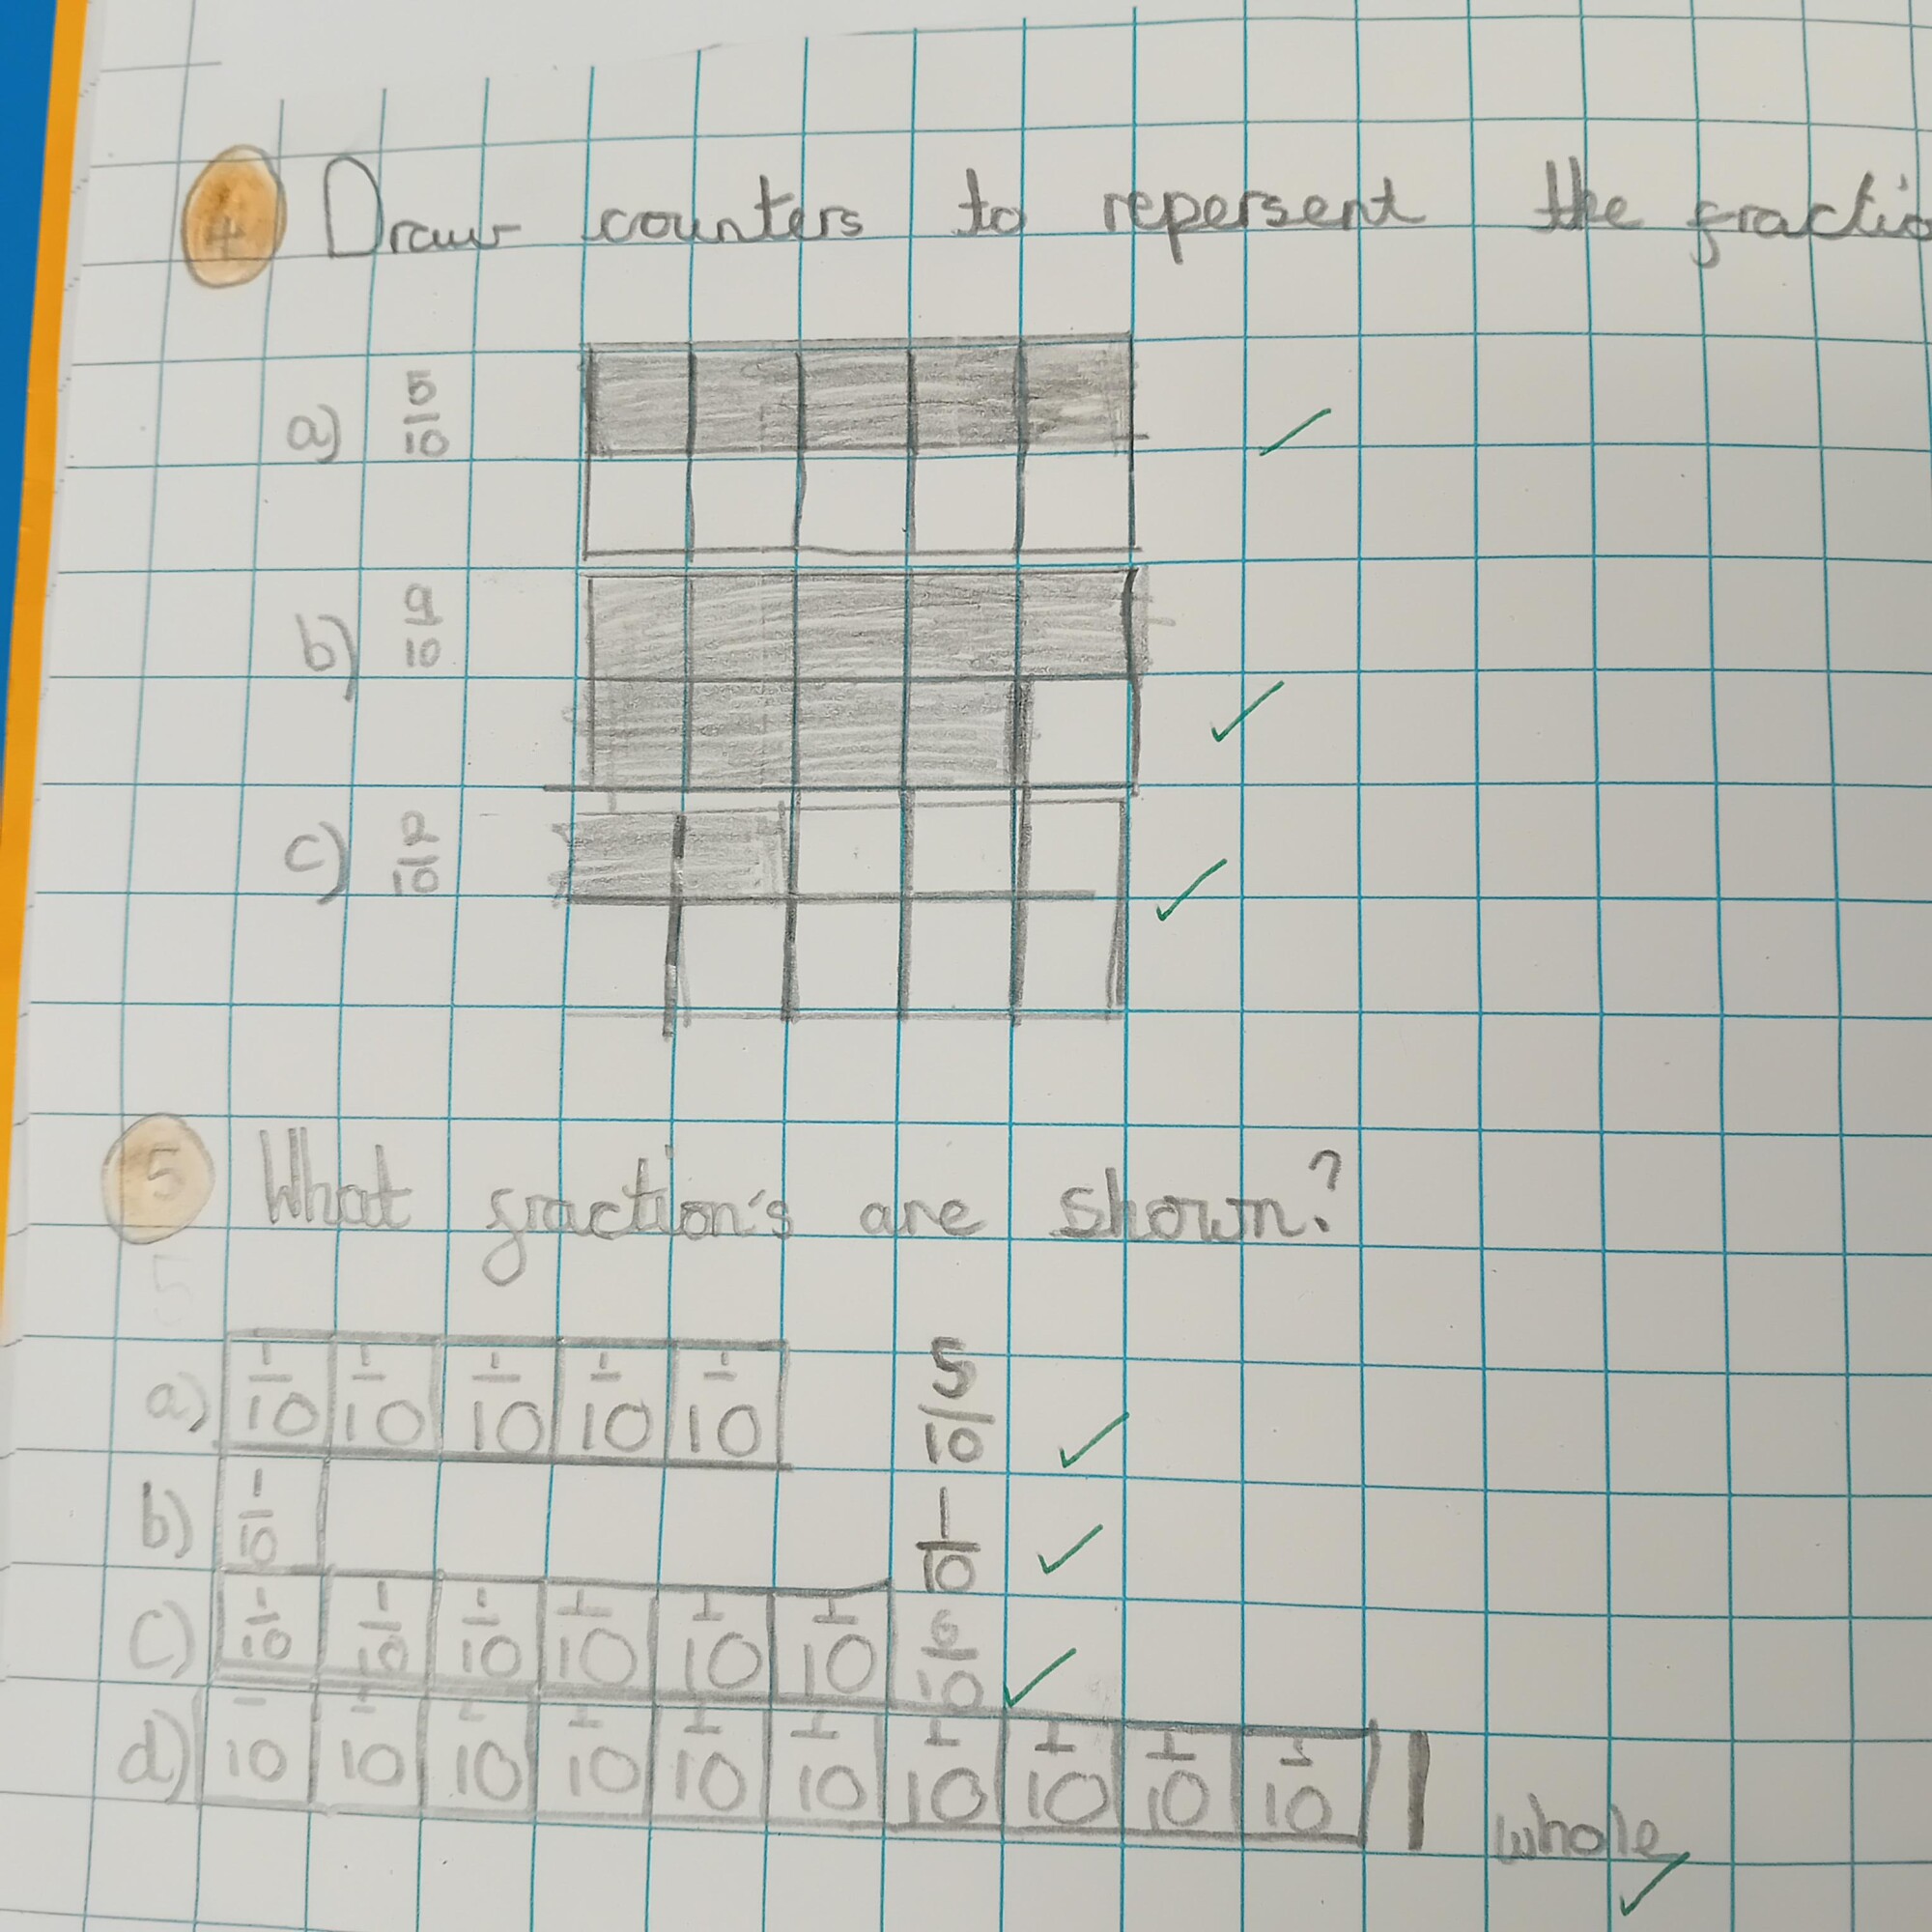 4 Draw counters to repersent the fractio
a) 5/10
b) 9/10
c) 2/10
5 What fraction's are shown?
5
a) 1/10 1/10 1/10 1/10 1/10 5/10
b) 1/10 1/10
c) 1/10 1/10 1/10 1/10 1/10 1/10 6/10
d) 1/10 1/10 1/10 1/10 1/10 1/10 1/10 1/10 1/10 1/10 1 whole